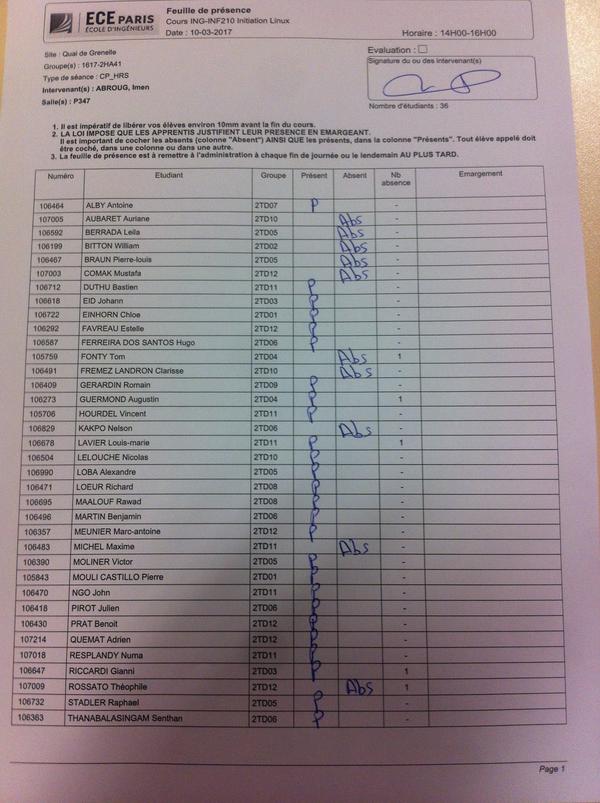 ECE PARIS
ÉCOLE D'INGÉNIEURS
Feuille de présence
Cours ING-INF210 Initiation Linux
Date : 10-03-2017
Horaire : 14H00-16H00
Site : Quai de Grenelle
Groupe(s) : 1617-2HA41
Type de séance : CP_HRS
Intervenant(s) : ABROUG, Imen
Salle(s) : P347
Evaluation :
Signature du ou des intervenant(s)
Nombre d'étudiants : 36
1. Il est impératif de libérer vos élèves environ 10mm avant la fin du cours.
2. LA LOI IMPOSE QUE LES APPRENTIS JUSTIFIENT LEUR PRESENCE EN EMARGEANT.
Il est important de cocher les absents (colonne "Absent") AINSI QUE les présents, dans la colonne "Présents". Tout élève appelé doit
être coché, dans une colonne ou dans une autre.
3. La feuille de présence est à remettre à l'administration à chaque fin de journée ou le lendemain AU PLUS TARD.
Numéro Etudiant Groupe Présent Absent Nb absence Emargement
106464 ALBY Antoine 2TD07 P -
107005 AUBARET Auriane 2TD10 Abs -
106592 BERRADA Leila 2TD05 Abs -
106199 BITTON William 2TD02 Abs -
106467 BRAUN Pierre-louis 2TD05 Abs -
107003 COMAK Mustafa 2TD12 Abs -
106712 DUTHU Bastien 2TD11 P -
106618 EID Johann 2TD03 P -
106722 EINHORN Chloe 2TD01 P -
106292 FAVREAU Estelle 2TD12 P -
106587 FERREIRA DOS SANTOS Hugo 2TD06 P -
105759 FONTY Tom 2TD04 Abs 1
106491 FREMEZ LANDRON Clarisse 2TD10 Abs -
106409 GERARDIN Romain 2TD09 P -
106273 GUERMOND Augustin 2TD04 P 1
105706 HOURDEL Vincent 2TD11 P -
106829 KAKPO Nelson 2TD06 Abs -
106678 LAVIER Louis-marie 2TD11 P 1
106504 LELOUCHE Nicolas 2TD10 P -
106990 LOBA Alexandre 2TD05 P -
106471 LOEUR Richard 2TD08 P -
106695 MAALOUF Rawad 2TD08 P -
106496 MARTIN Benjamin 2TD06 P -
106357 MEUNIER Marc-antoine 2TD12 P -
106483 MICHEL Maxime 2TD11 Abs -
106390 MOLINER Victor 2TD05 P -
105843 MOULI CASTILLO Pierre 2TD01 P -
106470 NGO John 2TD11 P -
106418 PIROT Julien 2TD06 P -
106430 PRAT Benoit 2TD12 P -
107214 QUEMAT Adrien 2TD12 P -
107018 RESPLANDY Numa 2TD11 P -
106647 RICCARDI Gianni 2TD03 P 1
107009 ROSSATO Théophile 2TD12 Abs 1
106732 STADLER Raphael 2TD05 P -
106363 THANABALASINGAM Senthan 2TD06 P -
Page 1